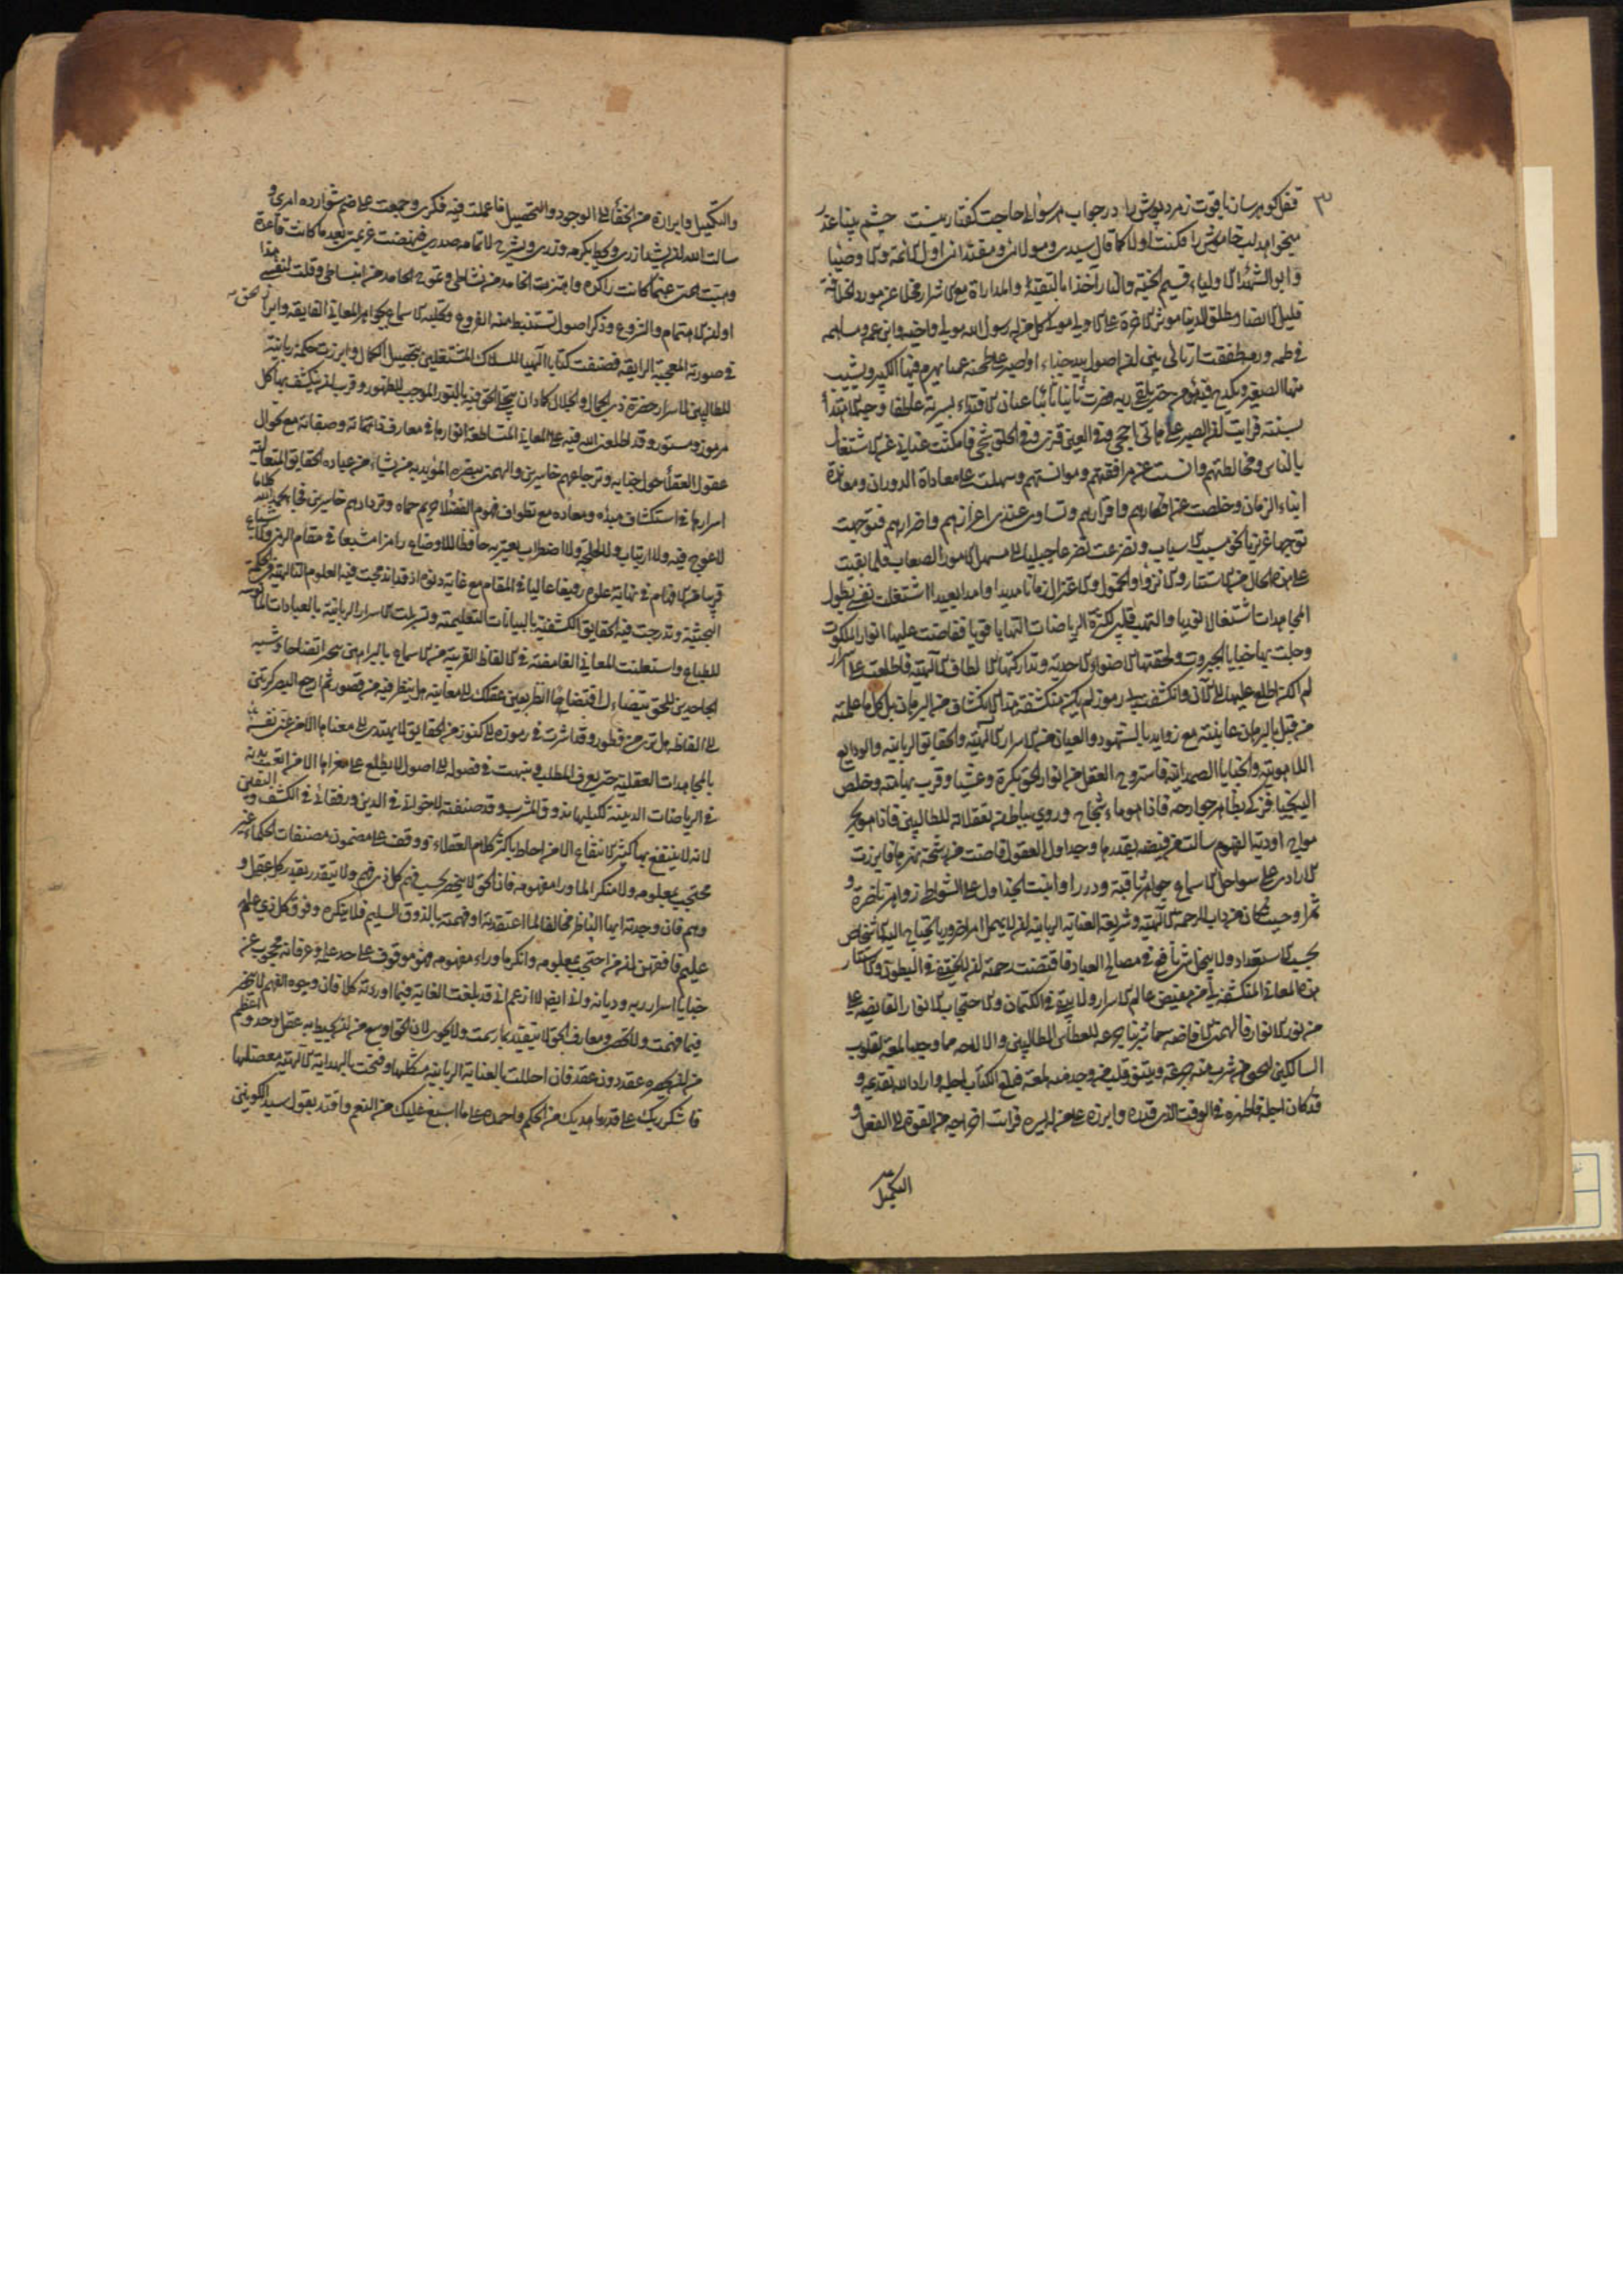 ٣
قفل گوهرسان یاقوت زمردپوش را در جواب هر سؤالی حاجت گفتار نیست چشم بینا عذر
میخواهد لب خاموش را فکنت اولا کما قال سیدی ومولائی ومقتدائی اول الائمة والاوصیا
وابو الشهداء الاولیاء قسیم الجنة والنار آخذا بالتقیة والمداراة مع الاشرار مخلا عن مورد الخلافة
قلیل الانصار مطلق الدنیا مؤثر الآخرة علی الاولی مولی کل من له رسول الله مولی واخیه وابن عمه ومساهمه
فی طمه ورمه طفقت ارتائی بین ان اصول بید جذاء او اصبر علی طخیة عمیاء یهرم فیها الکبیر ویشیب
منها الصغیر ویکدح فیها مؤمن حتی یلقی ربه فصرت ثانیا عنان الاقتداء بسیرته عاطفا وجه الابتداء
بسنته فرایت ان الصبر علی هاتی احجی وفی العین قذی وفی الحلق شجی فامسکت عنانی عن الاشتغال
بالناس ومخالطتهم وآیست عن مرافقتهم وموانستهم وسهلت علی معاداة الدوران ومعاندة
ابناء الزمان وخلصت عن انکارهم واقرارهم وتساوی عندی اعزازهم واضرارهم فتوجهت
توجها غریزیا نحو مسبب الاسباب وتضرعت تضرعا جبلیا الی مسهل الامور الصعاب فلما بقیت
علی هذا الحال من الاستتار والانزواء والخمول والاعتزال زمانا مدیدا وامدا بعیدا اشتعلت نفسی لطول
المجاهدات اشتعالا نوریا والتهب قلبی لکثرة الریاضات التهابا قویا ففاضت علیها انوار الملکوت
وحلت بها خبایا الجبروت ولحقتها الاضواء الاحدیة وتدارکتها الالطاف الالهیة فاطلعت علی اسرار
لم اکن اطلع علیها الی الآن وانکشفت لی رموز لم تکن منکشفة هذا الانکشاف من البرهان بل کل ما علمته
من قبل بالبرهان عاینته مع زواید بالشهود والعیان من الاسرار الالهیة والحقایق الربانیة والودایع
اللاهوتیة والخبایا الصمدانیة فاستروح العقل من انوار الحق بکرة وعشیا وقرب بها منه وخلص
الیه نجیا فزکی بظاهر جوارحه فاذا هو ماء ثجاج وروی بباطن تعقلاته للطالبین فاذا هو بحر
مواج اودیة الفهوم سالت من فیضه بقدرها وجداول العقول فاضت من رشحه بنهرها فابرزت
الاوادی علی سواحل الاسماع جواهر ثاقبة ودررا وانبتت الجداول علی الشواطی زواهر ناضرة و
ثمرا وحیث کان من داب الرحمة الالهیة وشریعة العنایة الربانیة ان لا یهمل امرا ضروریا یحتاج الیه الاشخاص
بحسب الاستعداد ولا یبخل بشیء نافع فی مصالح العباد فاقتضت رحمته ان لا یختفی فی البطون والاستتار
هذه المعانی المنکشفة لی من مفیض عالم الاسرار ولا یبقی فی الکتمان والاحتجاب الانوار الفایضة علی
من نور الانوار فالهمنی الافاضة مما شربنا جرعة للعطاش الطالبین والالاحة مما وجدنا لمعة لقلوب
السالکین لیحیی من شرب منه جرعة ویتنور قلب من وجد منه لمعة فبلغ الکتاب اجله واراد الله تقدیمه و
قد کان اجله فاظهره فی الوقت الذی قدره وابرزه علی من له یسره فرایت اخراجه من القوة الی الفعل و
التکمیل
والتکمیل وابرازه من الخفاء الی الوجود والتحصیل فاعملت فیه فکری وجمعت علی ضم شوارده امری و
سالت الله ان یشد ازری ویحط بکرمه وزری ویشرح لاتمامه صدری فنهضت عزیمتی بعد ما کانت قاعدة
وهبت همتی غب ما کانت راکدة واهتزت الخامد من نشاطی وتموج الجامد من انبساطی وقلت لنفسی هذا
اوان الاهتمام والشروع وذکر اصول تستنبط منها الفروع وتحلیة الاسماع بجواهر المعانی الفایقة وابراز الحق
فی صورته المعجبة الرایقة فصنفت کتابا الهیا للسلاک المشتغلین بتحصیل الکمال وابرزت حکمة ربانیة
للطالبین لاسرار حضرة ذی الجمال والجلال کاد ان یتجلی الحق فیه بالنور الموجب للظهور وقرب ان ینکشف بها کل
مرموز ومستور وقد اطلعنی الله فیه علی المعانی المتساطعة انوارها فی معارف ذاته وصفاته مع تجوال
عقول العقلاء حول جنابه وترجاعهم خاسرین والهمنی بنصره المؤید به من یشاء من عباده الحقایق المتعالیة
اسرارها فی استکشاف مبدئه ومعاده مع تطواف فهوم الفضلاء حریم حماه وتردادهم خاسرین فجاء بحمد الله کلاما
لا عوج فیه ولا ارتیاب ولا لجلجة ولا اضطراب یعتریه حافظا للاوضاع رامزا مشبعا فی مقام الرمز والاشباع
قریبا من الافهام فی نهایة علوه رفیعا عالیا فی المقام مع غایة دنوه اذ قد اندمجت فیه العلوم التالهیة فی الحکمة
البحثیة وتدرعت فیه الحقایق الکشفیة بالبیانات التعلیمیة وتسربلت الاسرار الربانیة بالعبارات المانوسة
للطباع واستعملت المعانی الغامضة فی الالفاظ القریبة من الاسماع بالبراهین تبختر اتضاحا وشبه
الجاحدین للحق تتضاءل افتضاحا انظر بعین عقلک الی معانیه هل تنظر فیه من قصور ثم ارجع البصر کرتین
الی الفاظه هل تری من فطور وقد اشرت فی رموزه الی کنوز من الحقایق لا یهتدی الی معناها الا من عنی نفسه
بالمجاهدات العقلیة حتی یعرف المطلب ونبهت فی فصوله الی اصول لا یطلع علی مغزاها الا من اتعب بدنه
فی الریاضات الدینیة لکیلا یذوق المشرب وقد صنفته لاخوانی فی الدین ورفقائی فی الکشف والیقین
لانه لا ینتفع بها کثیر الانتفاع الا من احاط باکثر کلام العقلاء ووقف علی مضمون مصنفات الحکماء غیر
محتجب بمعلومه ولا منکر لما وراء مفهومه فان الحق لا ینحصر بحسب فهم کل ذی فهم ولا یتقدر بقدر کل عقل و
وهم فان وجدته ایها الناظر مخالفا لما اعتقدته او فهمته بالذوق السلیم فلا تنکره وفوق کل ذی علم
علیم فافقهن ان من احتجب بمعلومه وانکر ما وراء مفهومه فهو موقوف علی حد علمه وعرفانه محجوب عن
خبایا اسرار ربه ودیانه وانی ایضا لا ازعم انی قد بلغت الغایة فیما اوردته کلا فان وجوه الفهم لا تنحصر
فیما فهمت ولا تحصی ومعارف الحق لا تتقید بما رسمت ولا تحوی لان الحق اوسع من ان یحیط به عقل وحد واعظم
من ان یحصره عقد دون عقد فان احللت بالعنایة الربانیة مشکلها وفتحت بالهدایة الالهیة معضلها
فاشکر ربک علی قدر ما هدیک من الحکم واحمده علی ما اسبغ علیک من النعم واقتد بقول سید الکونین